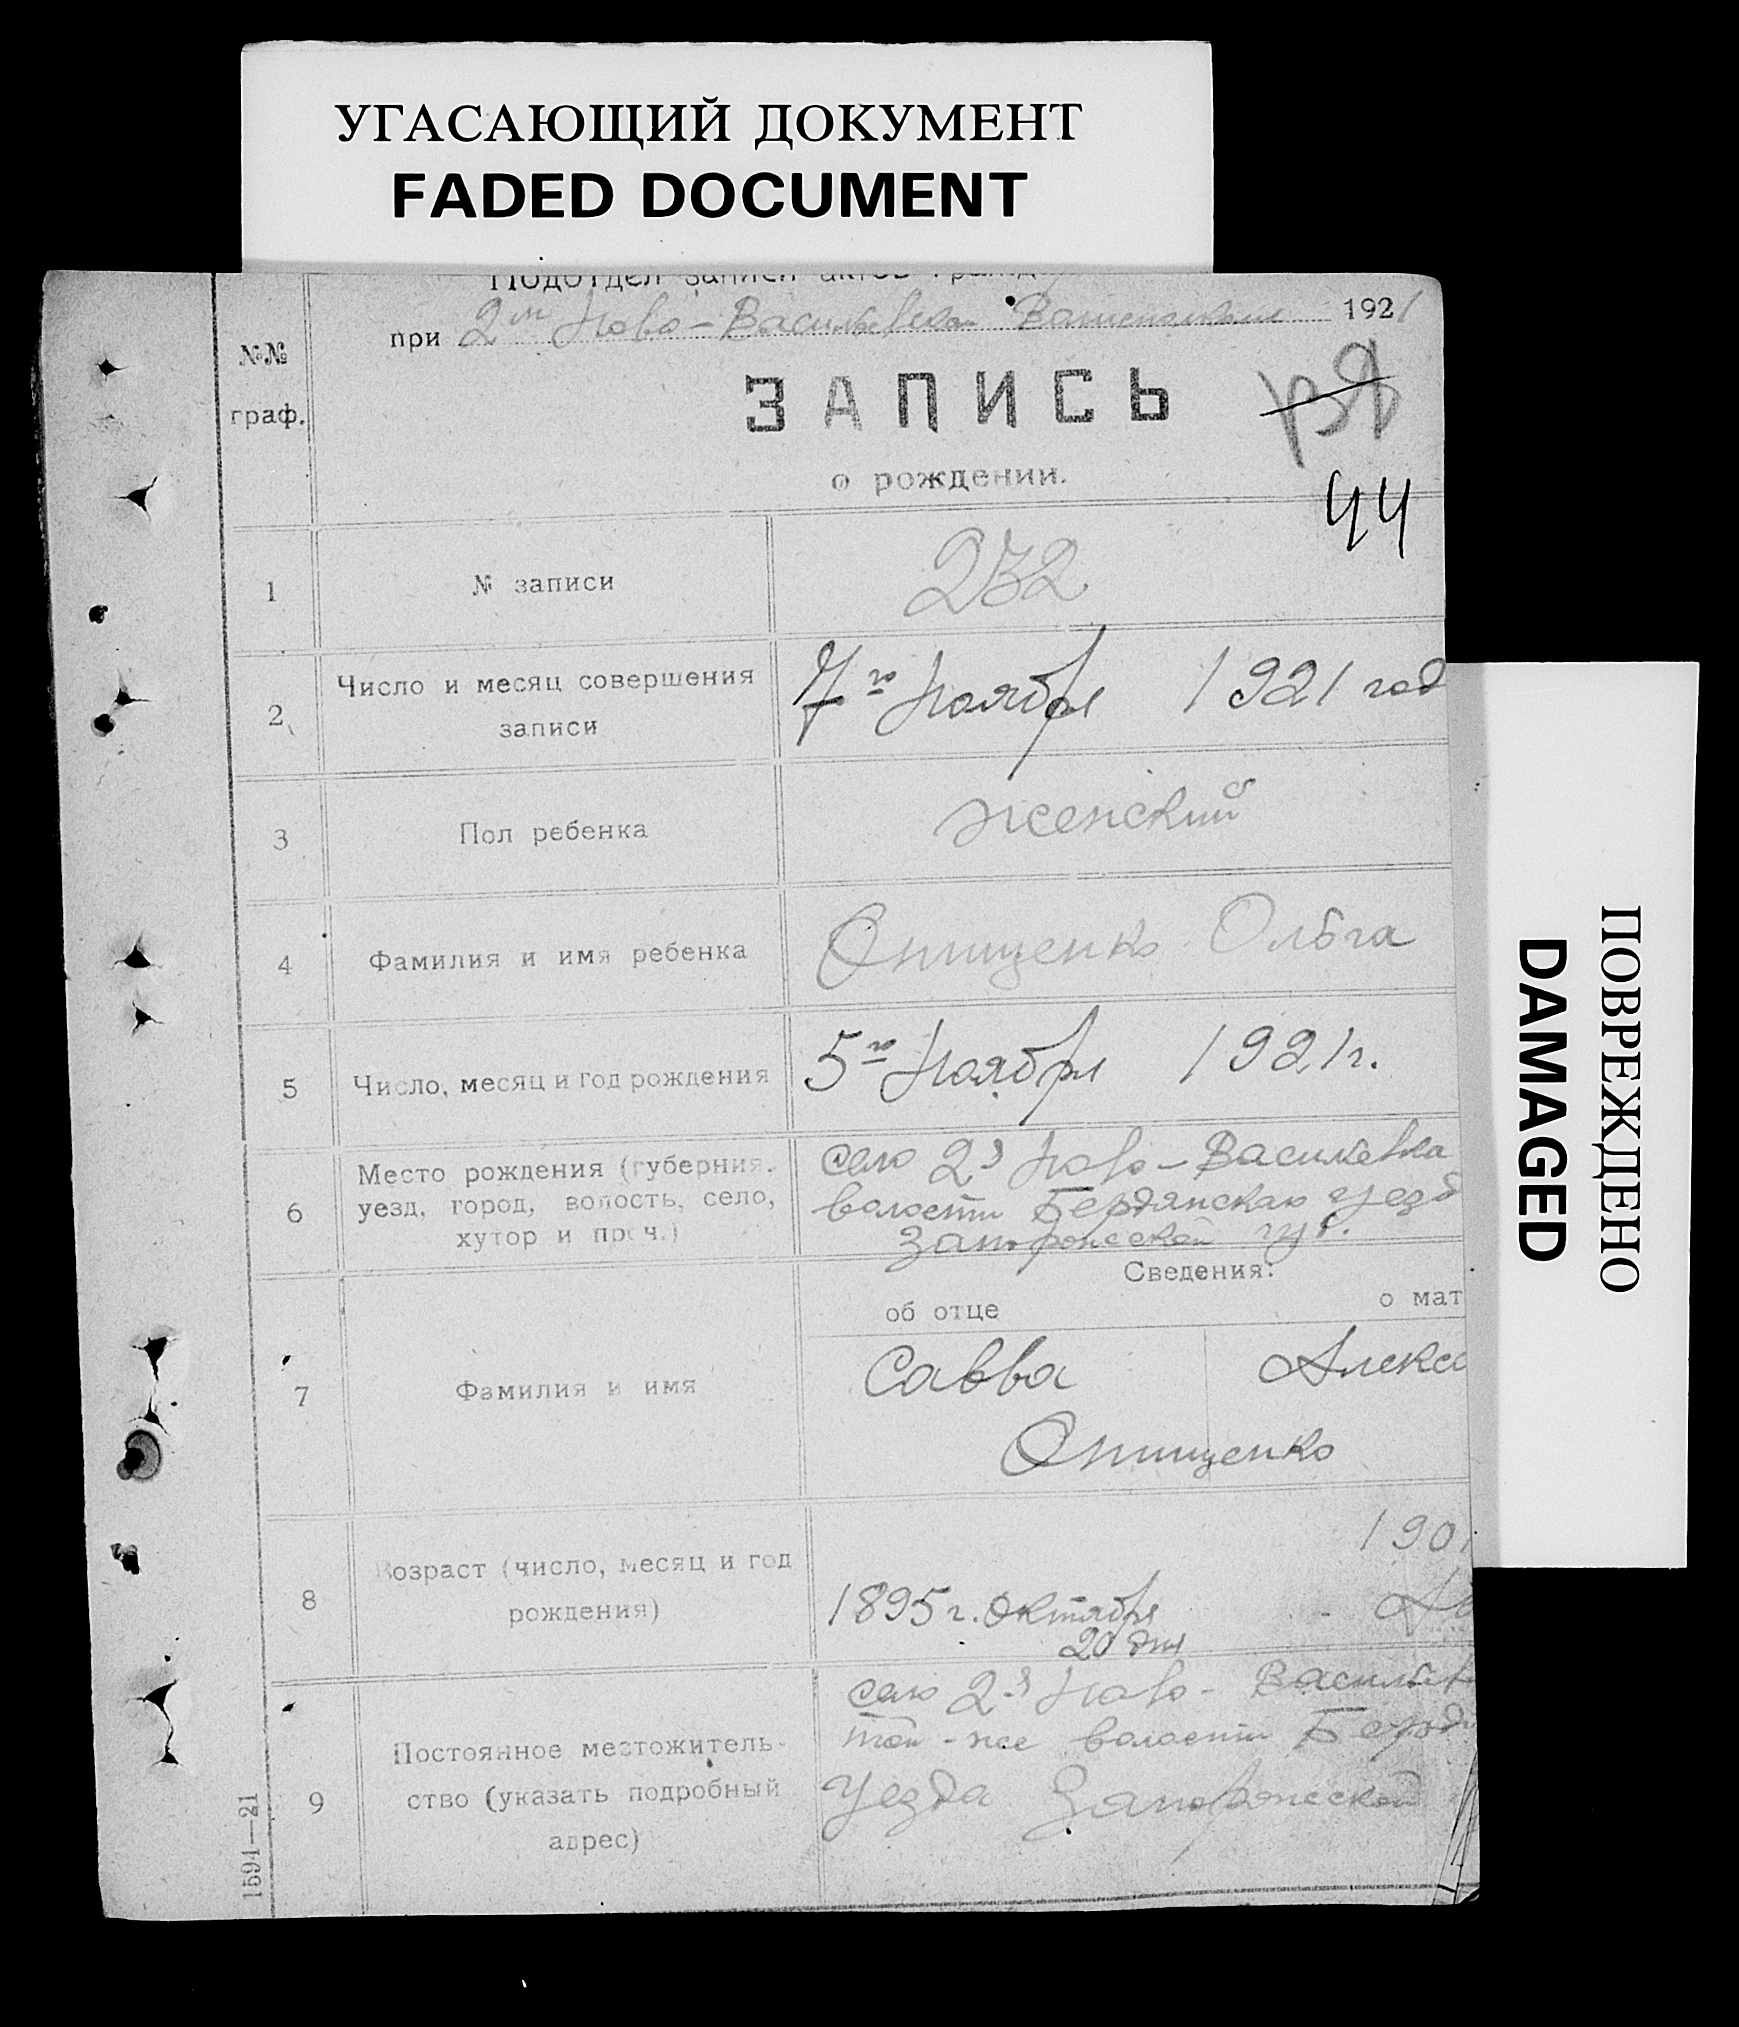 УГАСАЮЩИЙ ДОКУМЕНТ
FADED DOCUMENT
Подотдел записи актов
при 2м Ново-Васильевском 1921
№№
граф.
ЗАПИСЬ
о рождении.
44
1 № записи 232
2 Число и месяц совершения записи 7го Ноября 1921 год
3 Пол ребенка женский
4 Фамилия и имя ребенка Онищенко Ольга
5 Число, месяц и год рождения 5го Ноября 1921 г.
6 Место рождения (губерния, уезд, город, волость, село, хутор и проч.)
село 2я Ново-Васильевка
волости Бердянскаго уезд
Запорожской губ.
Сведения:
об отце о мат
7 Фамилия и имя
Савва Алекс
Онищенко
8 Возраст (число, месяц и год рождения)
190
1895 г. Октября
20 дня
9 Постоянное местожительство (указать подробный адрес)
село 2я Ново-Василье
той-же волости Берд
Уезда Запорожской
1594—21
ПОВРЕЖДЕНО
DAMAGED